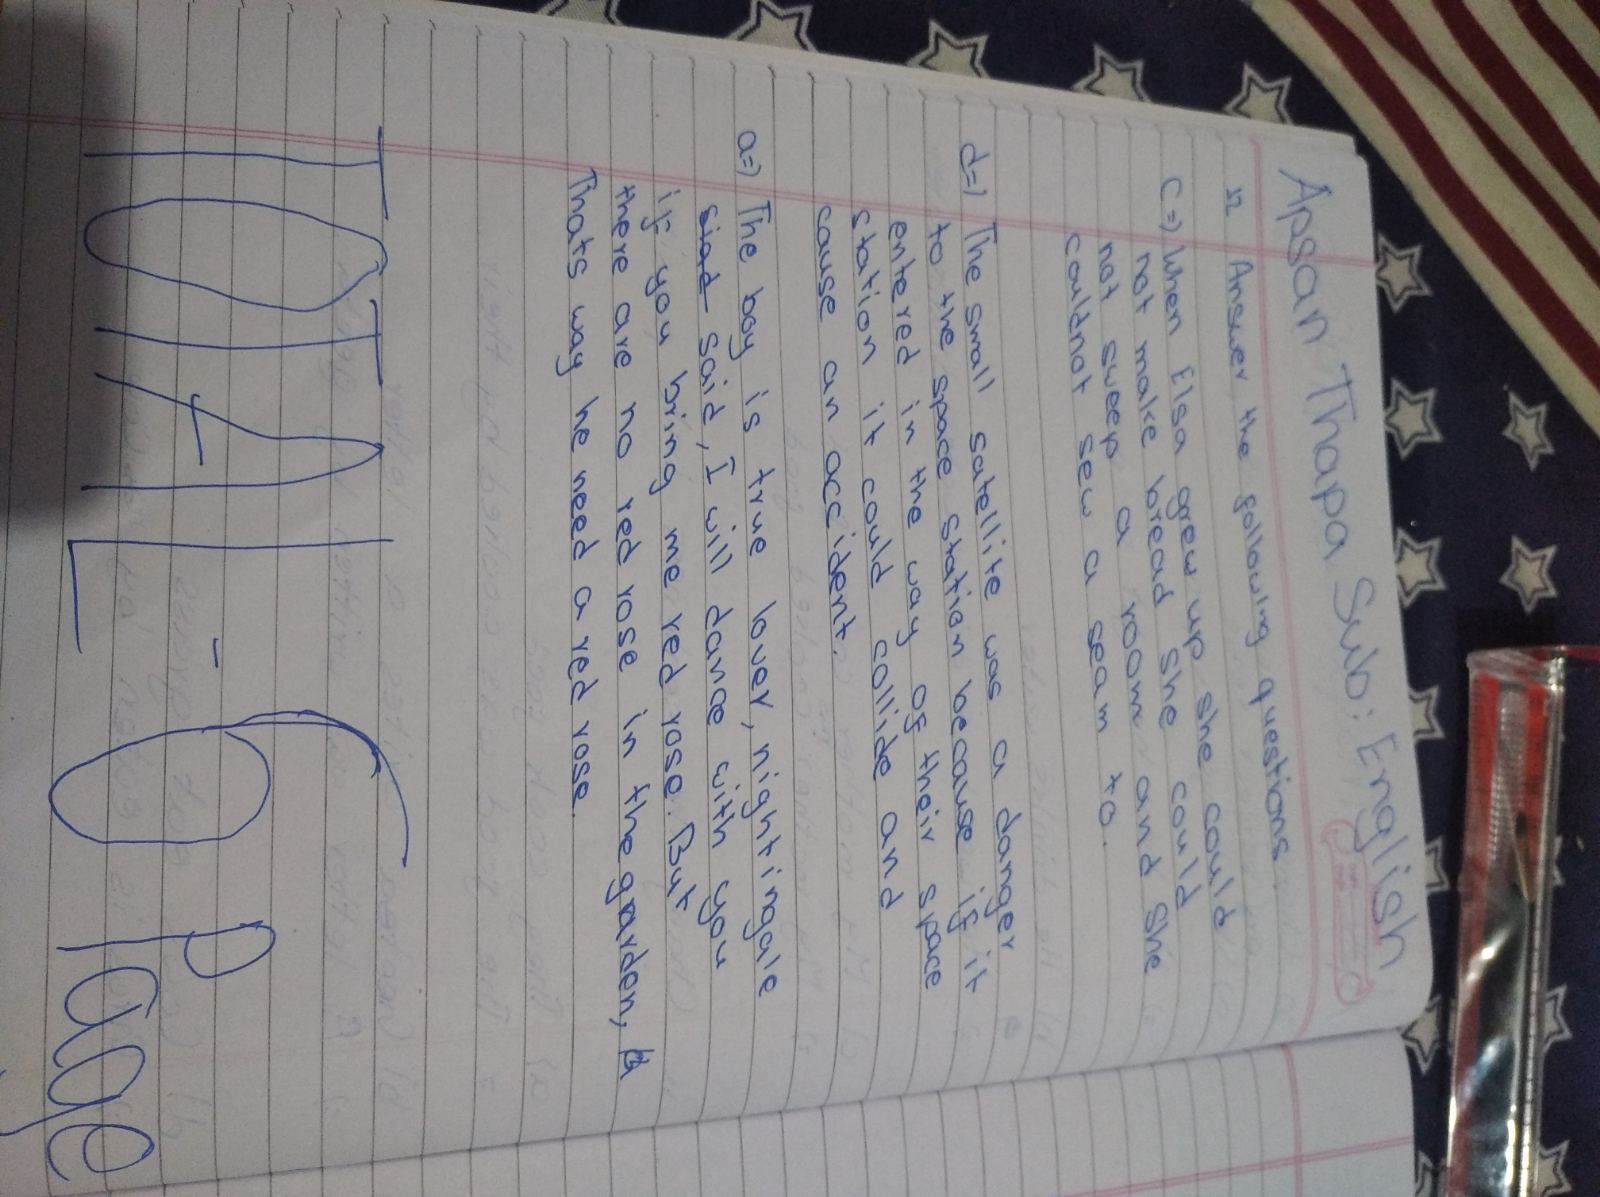 Apsan Thapa Sub: English
Answer the following questions.
c=) When Elsa grew up she could
not make bread she could
not sweep a room and she
couldnot sew a seam to.
d=) The small satellite was a danger
to the space station because if it
entered in the way of their space
station it could collide and
cause an accident.
a=) The boy is true lover, nightingale
siad said, I will dance with you
if you bring me red rose. But
there are no red rose in the garden,
Thats way he need a red rose.
TOTAL - 6 Page